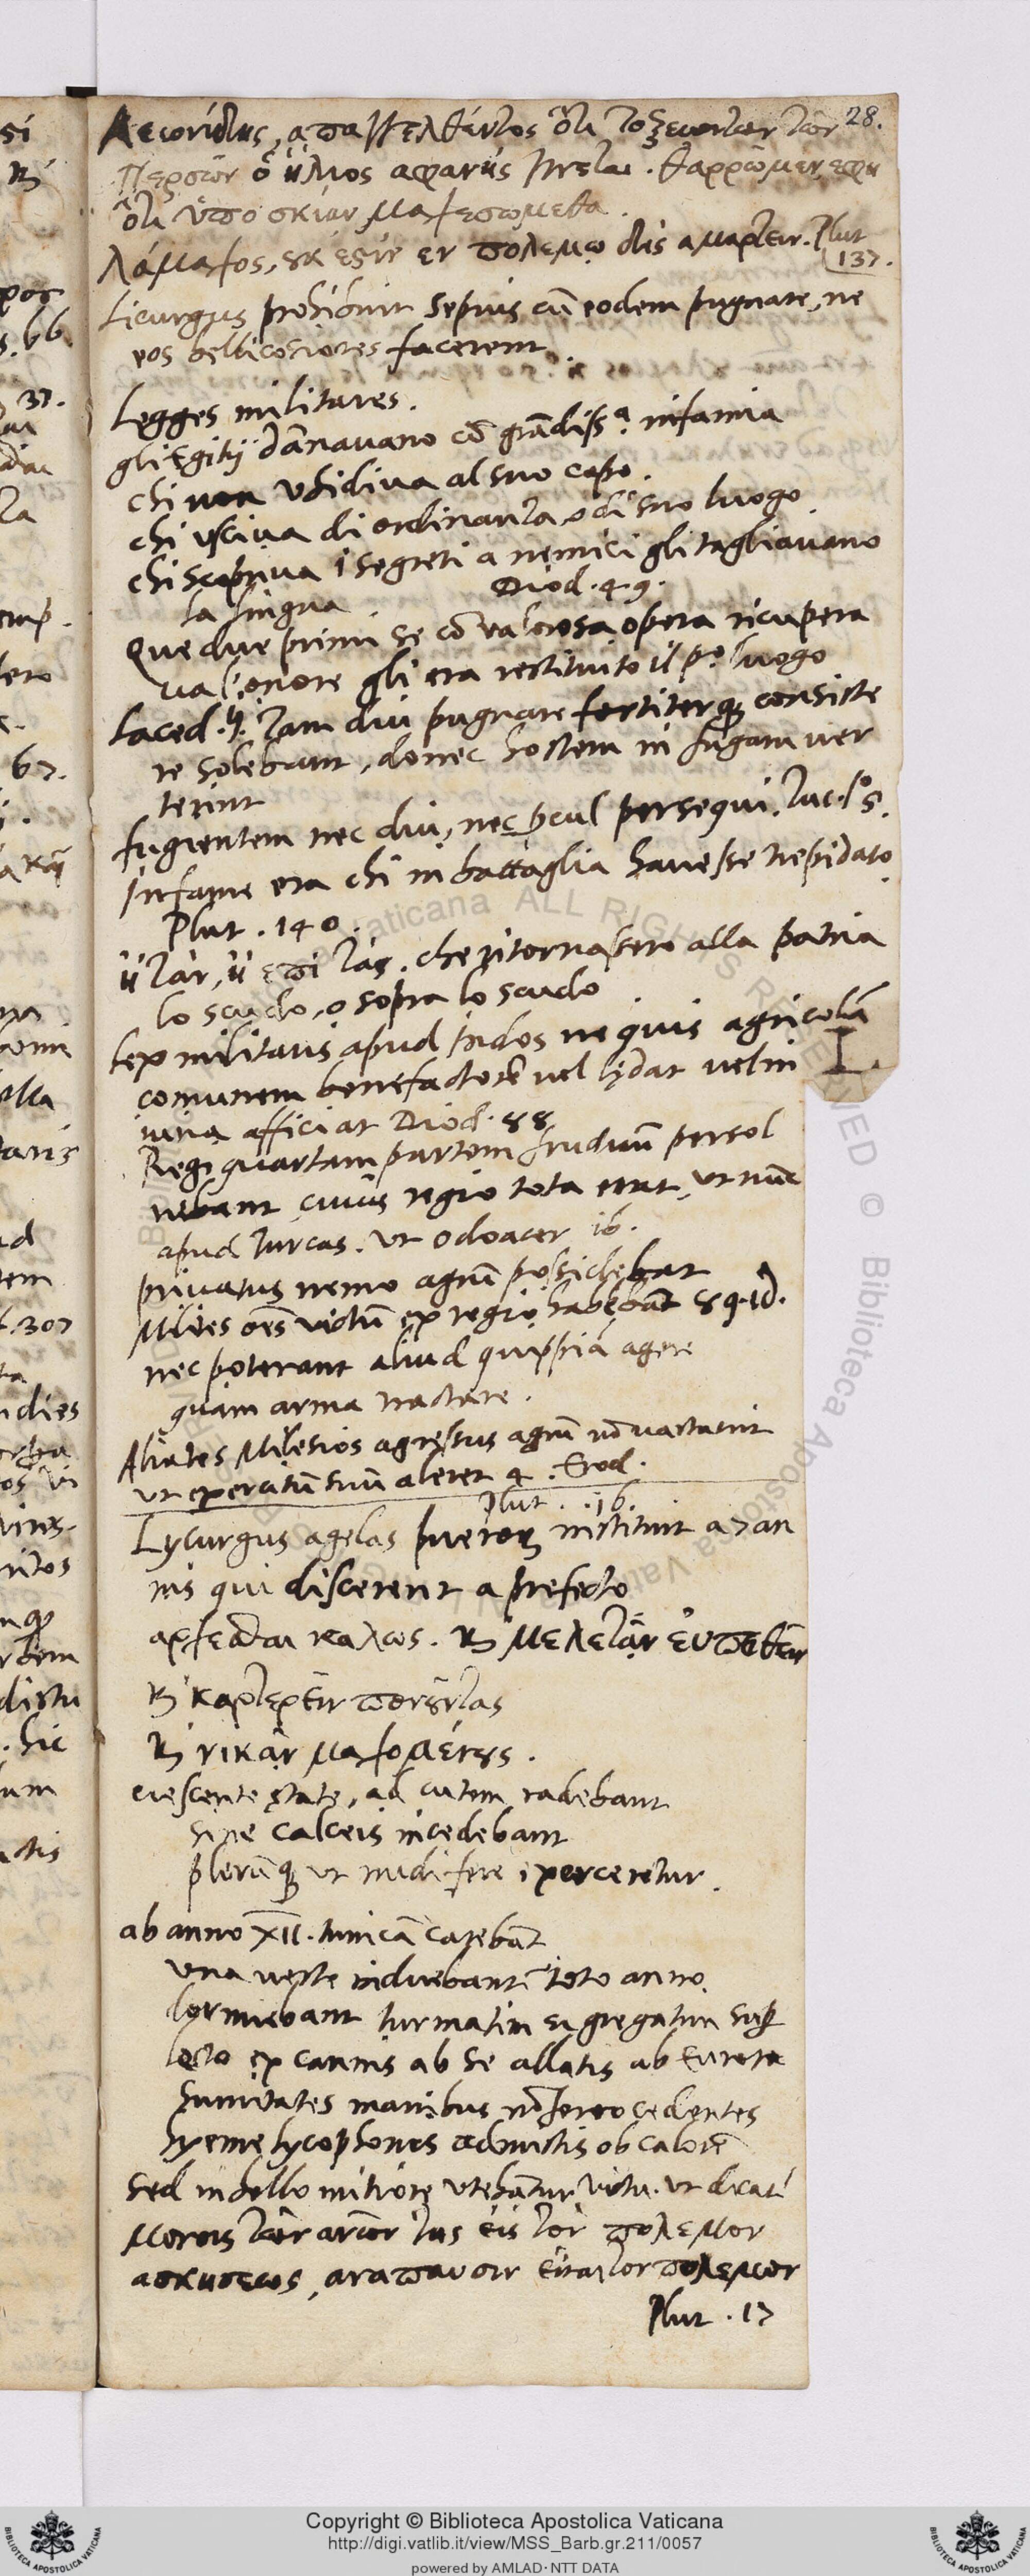 28.
Λεωνίδας, απαγγελθέντος ὅτι τοξευοντων των
Περσῶν ὁ ἥλιος αφανὴς γίνεται. θαρρῶμεν, εφη
ὅτι ὑπο σκιὰν μαχεσωμεθα.
λάμαχος, ουκ εςὶν εν πολεμω δὶς αμαρτειν. Plut
137.
Licurgus prohibuit sepius cũ eodem pugnare, ne
eos bellicosiores facerent.
Legges militares.
gli Egitij dãnavano cõ grãdiss.ª infamia
chi non ubidiva al suo capo.
chi usciva di ordinanza, o di suo luogo.
chi scopriva i segreti a nemici gli tagliavano
la lingua. Diod. 49.
Que due primi se cõ valorosa opera ricupera
va l'onore gli era restituito il p.º luogo
Laced. ij. Tam diu pugnare fortiterq; consiste
re solebant, donec hostem in fugam ver
terint
fugientem nec diu, nec pcul persequi. Tuc. lº 5.
Infame era chi in battaglia havesse trepidato.
Plut. 140.
ἢ τὰν, ἢ επὶ τᾶς. che ritornassero alla patria
lo scudo, o sopra lo scudo
lex militaris apud Indos ne quis agricolã
comunem benefactorẽ vel lędat vel in I.
iuria afficiat Diod. 88
Regi quartam partem fructuũ persol
vebant, cuius regio tota erat, ut nũc
apud Turcas. ut Odoacer ib.
privatus nemo agrũ possidebat
Milites oẽs victũ ex regio habebãt 89. id.
nec poterant aliud quippiã agere
quam arma tractare.
Aliates Milesios agressus agrũ nõ vastavit
ut exercitũ suũ aleret 4. Erod.
Plut. 16.
Lycurgus agelas pueroꝝ instituit a 7 an
nis qui discerent a prefecto
αρχεσθαι καλως. ϗ μελετᾷν εὐπειθεῖν
ϗ καρτερεῖν πονοῦντας
ϗ νικᾷν μαχομένους.
crescente ętate, ad cutem radebant
sine calceis incedebant
plerũq; ut nudi fere exercerẽtur.
ab anno XII. tunicã carebãt
una veste induebantᷣ toto anno
dormiebant turmatim et gregatim sup
lecto ex cannis ab se allatis ab Eurota
Sumitates manibus nõ ferro cedentes
hyeme lycophones admistis ob calorẽ
Sed in bello mitiore utebãtur victu. ut dicati
μονοις των ανων της εἰς τὸν πολεμον
ασκησεως, αναπαυσιν εἶναι τον πολεμον
Plut. 17
Copyright © Biblioteca Apostolica Vaticana
http://digi.vatlib.it/view/MSS_Barb.gr.211/0057
powered by AMLAD · NTT DATA